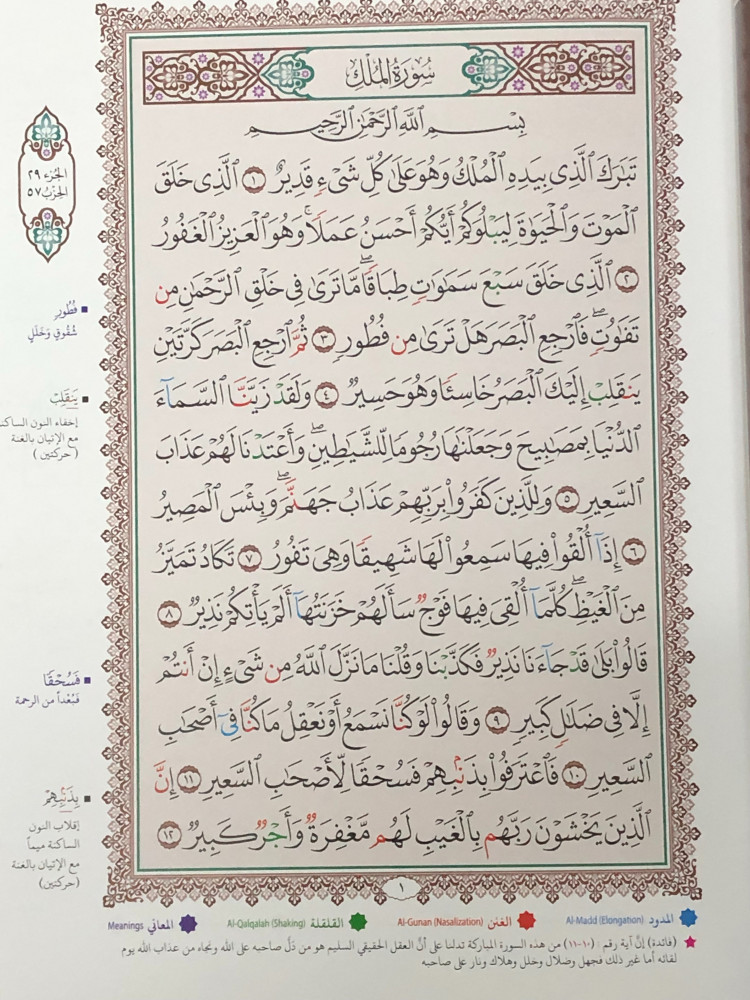 سُورَةُ المُلْكِ
بِسْمِ اللَّهِ الرَّحْمَٰنِ الرَّحِيمِ
تَبَارَكَ الَّذِي بِيَدِهِ الْمُلْكُ وَهُوَ عَلَىٰ كُلِّ شَيْءٍ قَدِيرٌ ١ الَّذِي خَلَقَ
الْمَوْتَ وَالْحَيَاةَ لِيَبْلُوَكُمْ أَيُّكُمْ أَحْسَنُ عَمَلًا ۚ وَهُوَ الْعَزِيزُ الْغَفُورُ
٢ الَّذِي خَلَقَ سَبْعَ سَمَاوَاتٍ طِبَاقًا ۖ مَّا تَرَىٰ فِي خَلْقِ الرَّحْمَٰنِ مِن
تَفَاوُتٍ ۖ فَارْجِعِ الْبَصَرَ هَلْ تَرَىٰ مِن فُطُورٍ ٣ ثُمَّ ارْجِعِ الْبَصَرَ كَرَّتَيْنِ
يَنقَلِبْ إِلَيْكَ الْبَصَرُ خَاسِئًا وَهُوَ حَسِيرٌ ٤ وَلَقَدْ زَيَّنَّا السَّمَاءَ
الدُّنْيَا بِمَصَابِيحَ وَجَعَلْنَاهَا رُجُومًا لِّلشَّيَاطِينِ ۖ وَأَعْتَدْنَا لَهُمْ عَذَابَ
السَّعِيرِ ٥ وَلِلَّذِينَ كَفَرُوا بِرَبِّهِمْ عَذَابُ جَهَنَّمَ ۖ وَبِئْسَ الْمَصِيرُ
٦ إِذَا أُلْقُوا فِيهَا سَمِعُوا لَهَا شَهِيقًا وَهِيَ تَفُورُ ٧ تَكَادُ تَمَيَّزُ
مِنَ الْغَيْظِ ۖ كُلَّمَا أُلْقِيَ فِيهَا فَوْجٌ سَأَلَهُمْ خَزَنَتُهَا أَلَمْ يَأْتِكُمْ نَذِيرٌ ٨
قَالُوا بَلَىٰ قَدْ جَاءَنَا نَذِيرٌ فَكَذَّبْنَا وَقُلْنَا مَا نَزَّلَ اللَّهُ مِن شَيْءٍ إِنْ أَنتُمْ
إِلَّا فِي ضَلَالٍ كَبِيرٍ ٩ وَقَالُوا لَوْ كُنَّا نَسْمَعُ أَوْ نَعْقِلُ مَا كُنَّا فِي أَصْحَابِ
السَّعِيرِ ١٠ فَاعْتَرَفُوا بِذَنبِهِمْ فَسُحْقًا لِّأَصْحَابِ السَّعِيرِ ١١ إِنَّ
الَّذِينَ يَخْشَوْنَ رَبَّهُم بِالْغَيْبِ لَهُم مَّغْفِرَةٌ وَأَجْرٌ كَبِيرٌ ١٢
١
الجُزء ٢٩
الحِزب ٥٧
فُطُورٍ
شُقُوقٍ وَخَلَلٍ
يَنقَلِبْ
إخفاء النون الساكنة
مع الإتيان بالغنة
(حركتين)
فَسُحْقًا
فَبُعْداً من الرحمة
بِذَنبِهِمْ
إقلاب النون
الساكنة ميماً
مع الإتيان بالغنة
(حركتين)
المدود Al-Madd (Elongation) الغنن Al-Gunan (Nasalization) القلقلة Al-Qalqalah (Shaking) المعاني Meanings
(فائدة) إنَّ آية رقم (١٠-١١) من هذه السورة المباركة تدلنا على أنَّ العقل الحقيقي السليم هو من دَلَّ صاحبه على الله ونجاه من عذاب الله يوم
لقائه أما غير ذلك فجهل وضلال وخلل وهلاك ونار على صاحبه